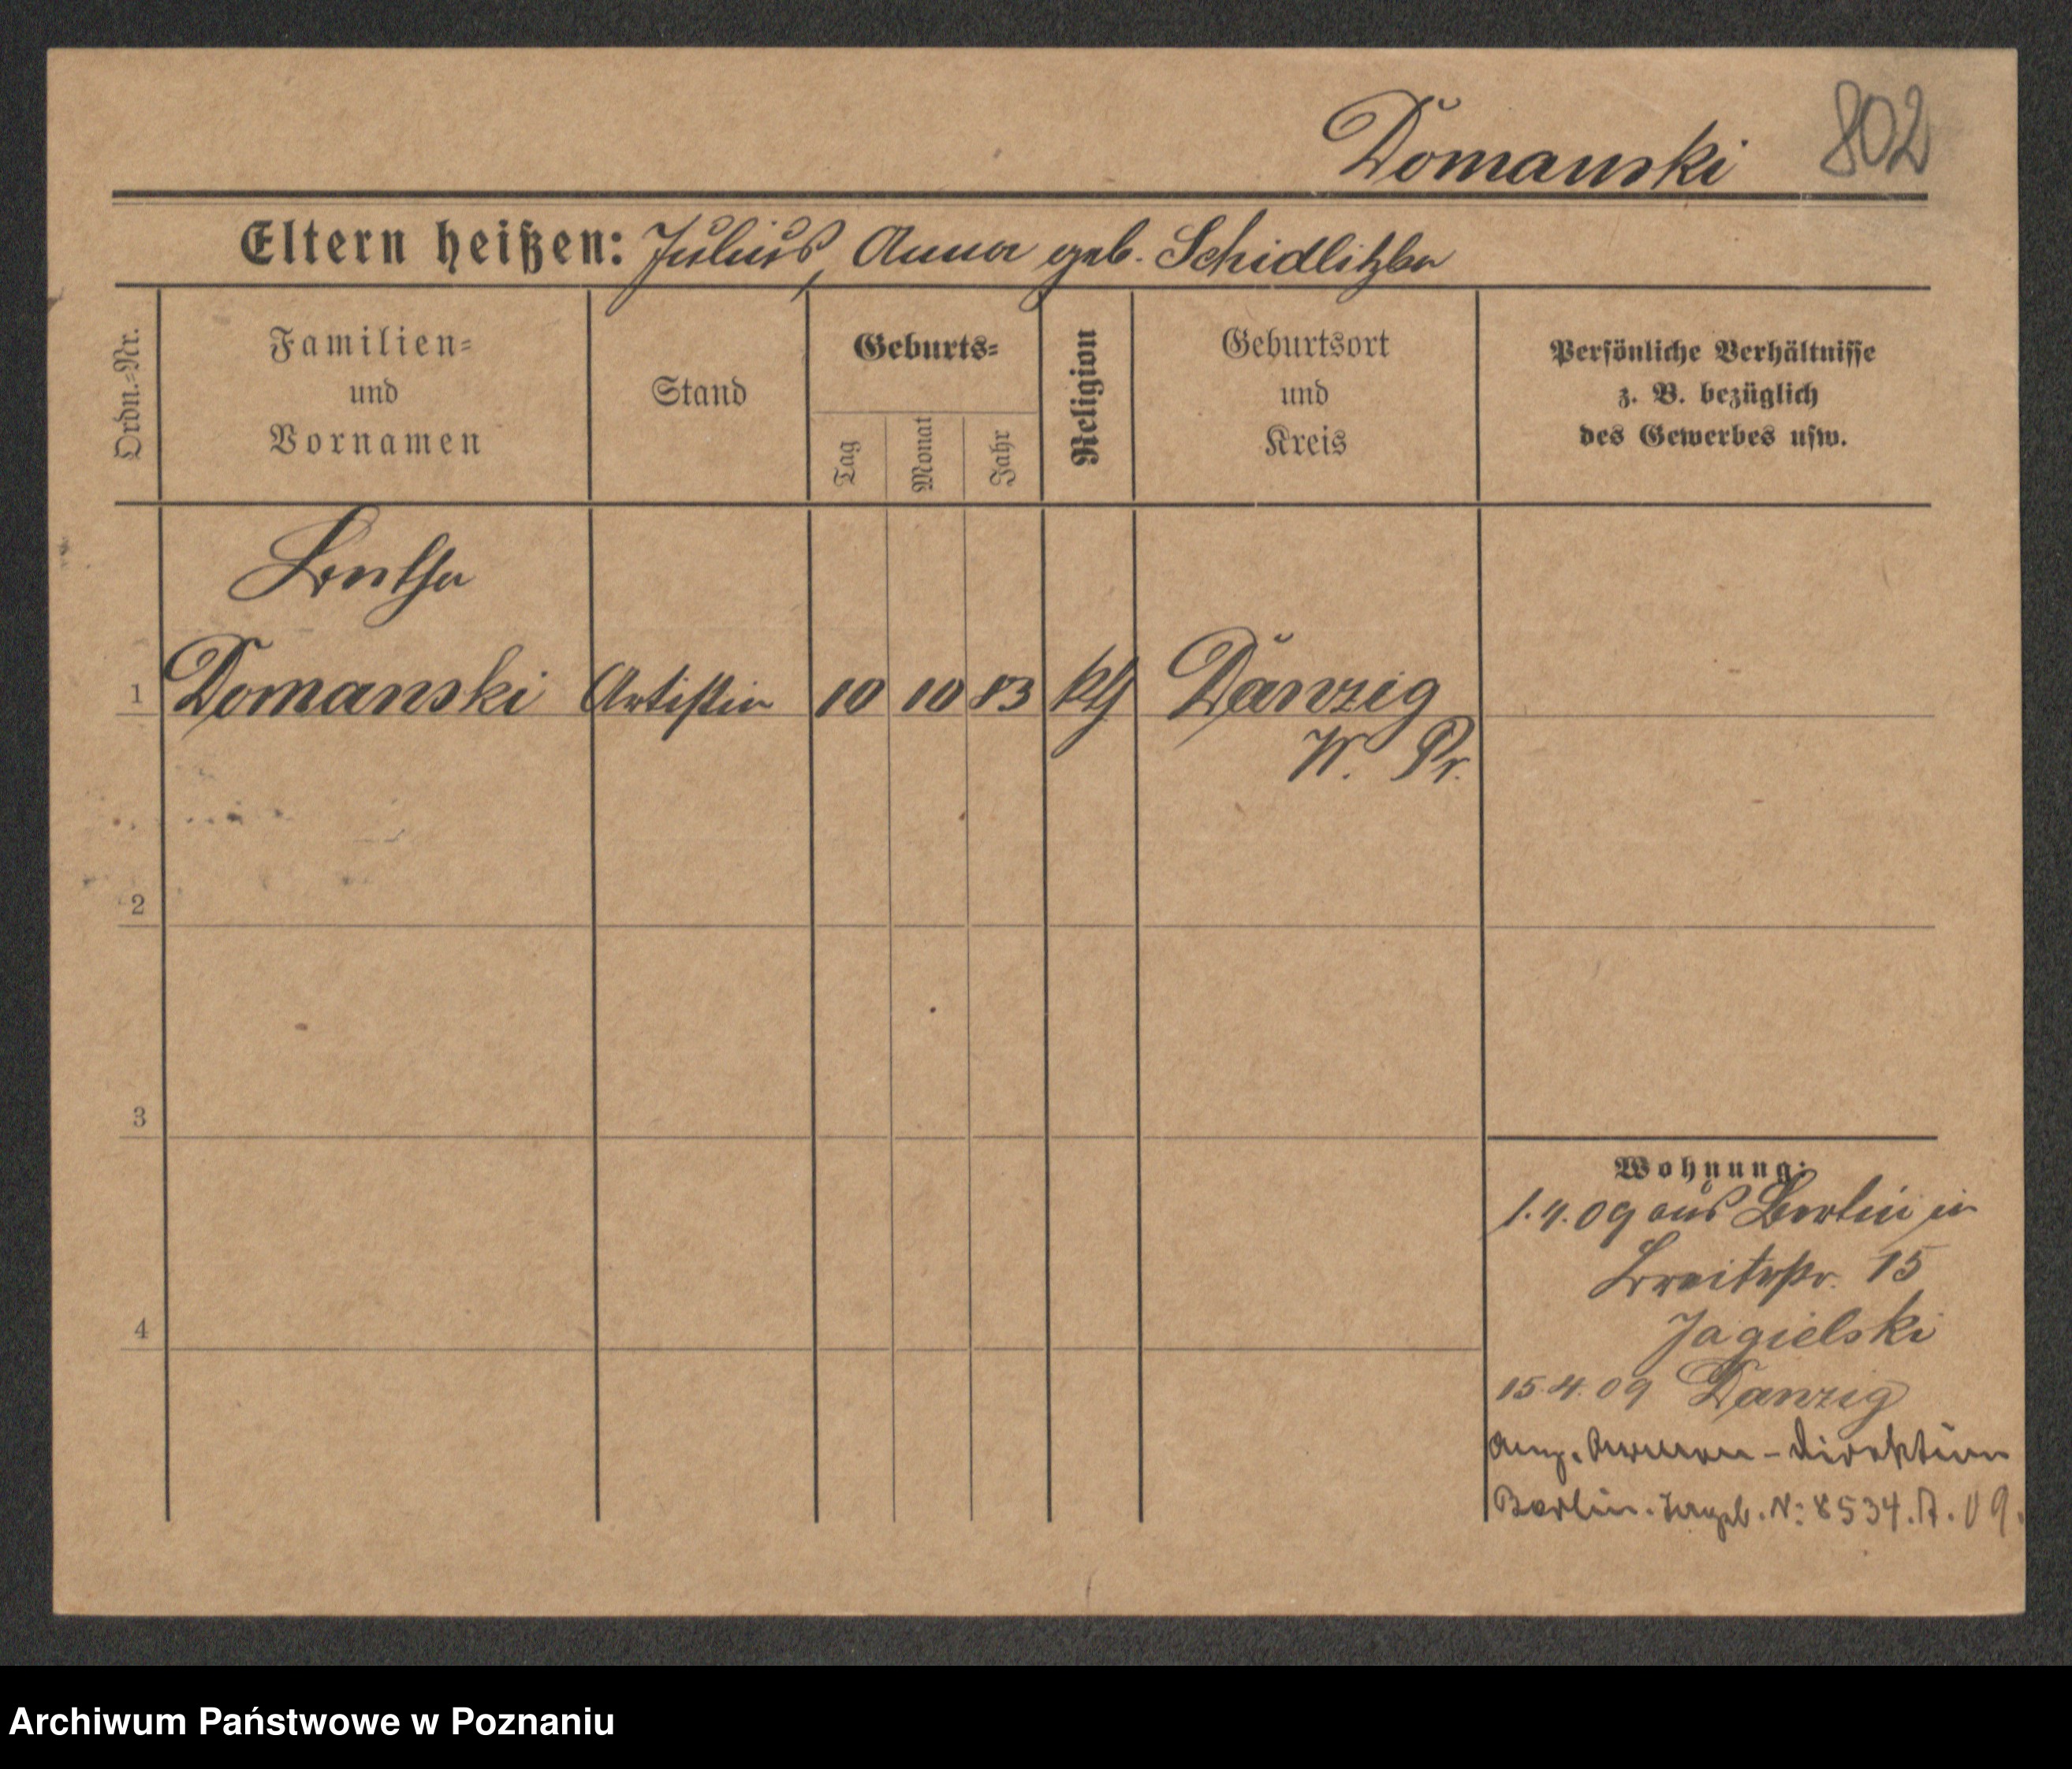 Domanski 802
Eltern heißen: Julius, Anna geb. Schidlitzka
Ordn.=Nr.
Familien=
und
Vornamen
Stand
Geburts=
Tag
Monat
Jahr
Religion
Geburtsort
und
Kreis
Persönliche Verhältnisse
z. B. bezüglich
des Gewerbes usw.
Bertha
1 Domanski Artistin 10 10 83 kth Danzig
W. Pr.
2
3
4
Wohnung:
1.4.09 aus Berlin in
Breitestr. 15
Jagielski
15.4.09 Danzig
Armen-Direktion
Berlin. Tageb. N: 8534. A. 09.
Archiwum Państwowe w Poznaniu